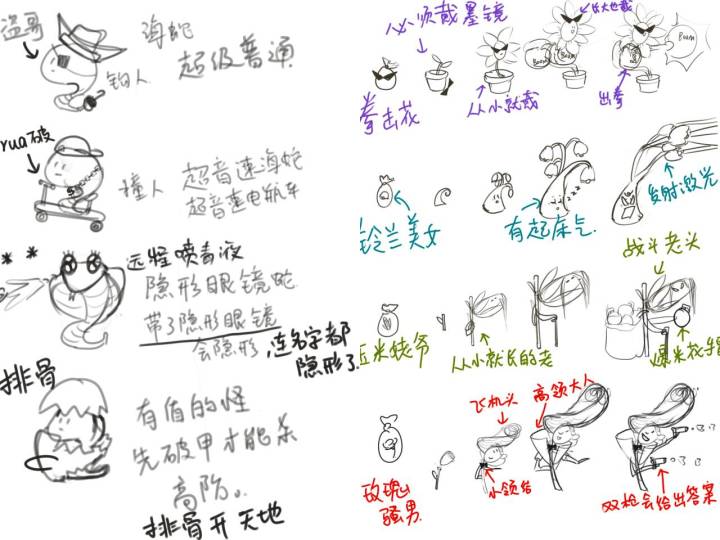 盗哥
海蛇
钩人
超级普通
rua破
撞人
超音速海蛇
超音速电瓶车
**
远程喷毒液
隐形眼镜蛇
带了隐形眼镜
会隐形,连名字都
隐形了
排骨
有值的怪
先破甲才能杀
高防。。
排骨开天地
必须戴墨镜
长大也戴
Boom
Boom
Boom
拳击花
从小就戴
出拳
铃兰美女
有起床气
发射激光
zzz
战斗老头
玉米姥爷
从小就长的老
爆米花手雷
飞机头
高领大人
玫瑰
骚男
小领结
双枪会给出答案